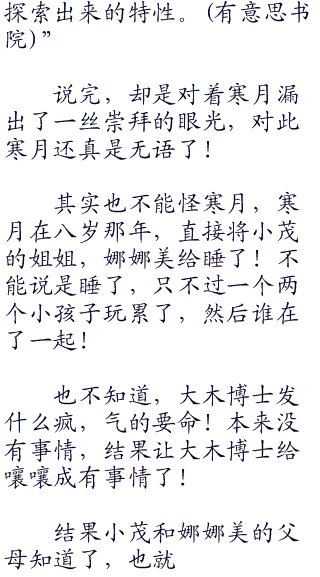 探索出来的特性。(有意思书
院)”
说完，却是对着寒月漏
出了一丝崇拜的眼光，对此
寒月还真是无语了！
其实也不能怪寒月，寒
月在八岁那年，直接将小茂
的姐姐，娜娜美给睡了！不
能说是睡了，只不过一个两
个小孩子玩累了，然后谁在
了一起！
也不知道，大木博士发
什么疯，气的要命！本来没
有事情，结果让大木博士给
嚷嚷成有事情了！
结果小茂和娜娜美的父
母知道了，也就